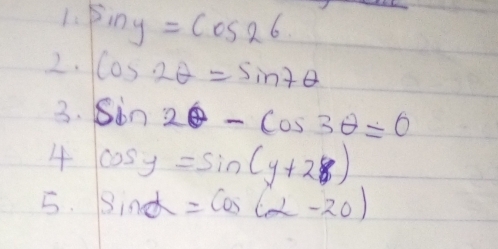 1. Sin y = Cos 26
2. Cos 2θ = Sin 7θ
3. Sin 2θ - Cos 3θ = 0
4 cosy = sin(y+28)
5. Sin α = Cos (α - 20)